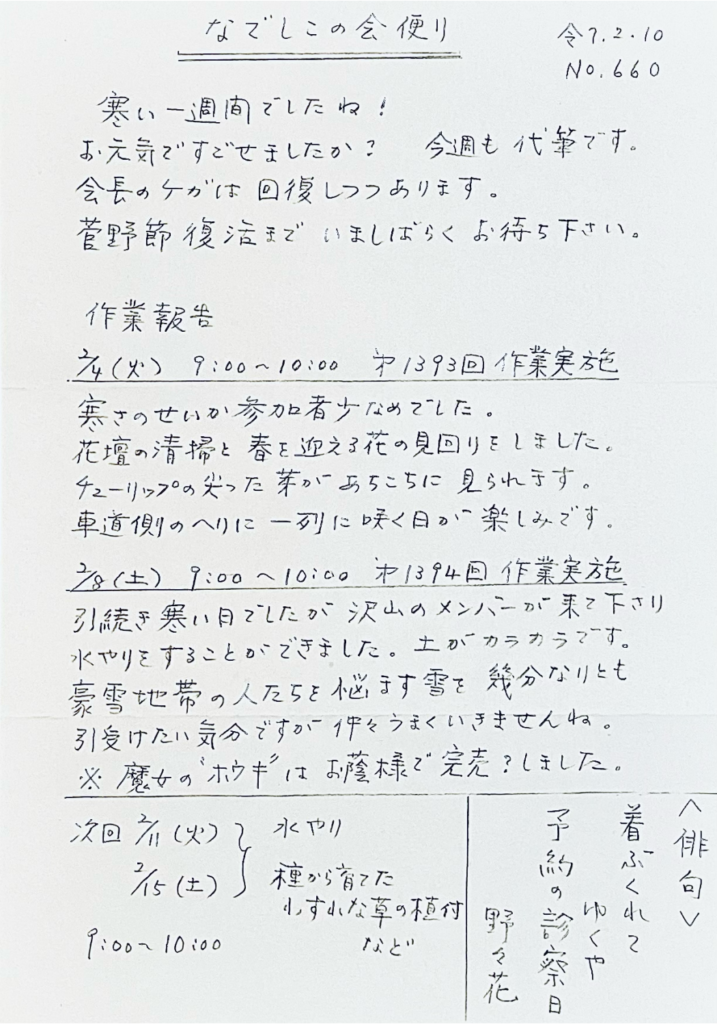 なでしこの会便り
令7.2.10
No.660
寒い一週間でしたね!
お元気ですごせましたか? 今週も代筆です。
会長のケガは回復しつつあります。
菅野節復活まで いましばらく お待ち下さい。
作業報告
2/4(火) 9:00~10:00 第1393回 作業実施
寒さのせいか参加者少なめでした。
花壇の清掃と 春を迎える花の見回りをしました。
チューリップの尖った芽があちこちに見られます。
車道側のヘリに一列に咲く日が楽しみです。
2/8(土) 9:00~10:00 第1394回 作業実施
引続き寒い日でしたが 沢山のメンバーが来て下さり
水やりをすることができました。土がカラカラです。
豪雪地帯の人たちを悩ます雪を 幾分なりとも
引受けたい気分ですが 仲々うまくいきませんね。
※ 魔女の“ホウキ”は お蔭様で完売?しました。
次回 2/11(火) 水やり
2/15(土) 種から育てた
わすれな草の植付
9:00~10:00 など
<俳句>
着ぶくれて
ゆくや
予約の診察日
野々花